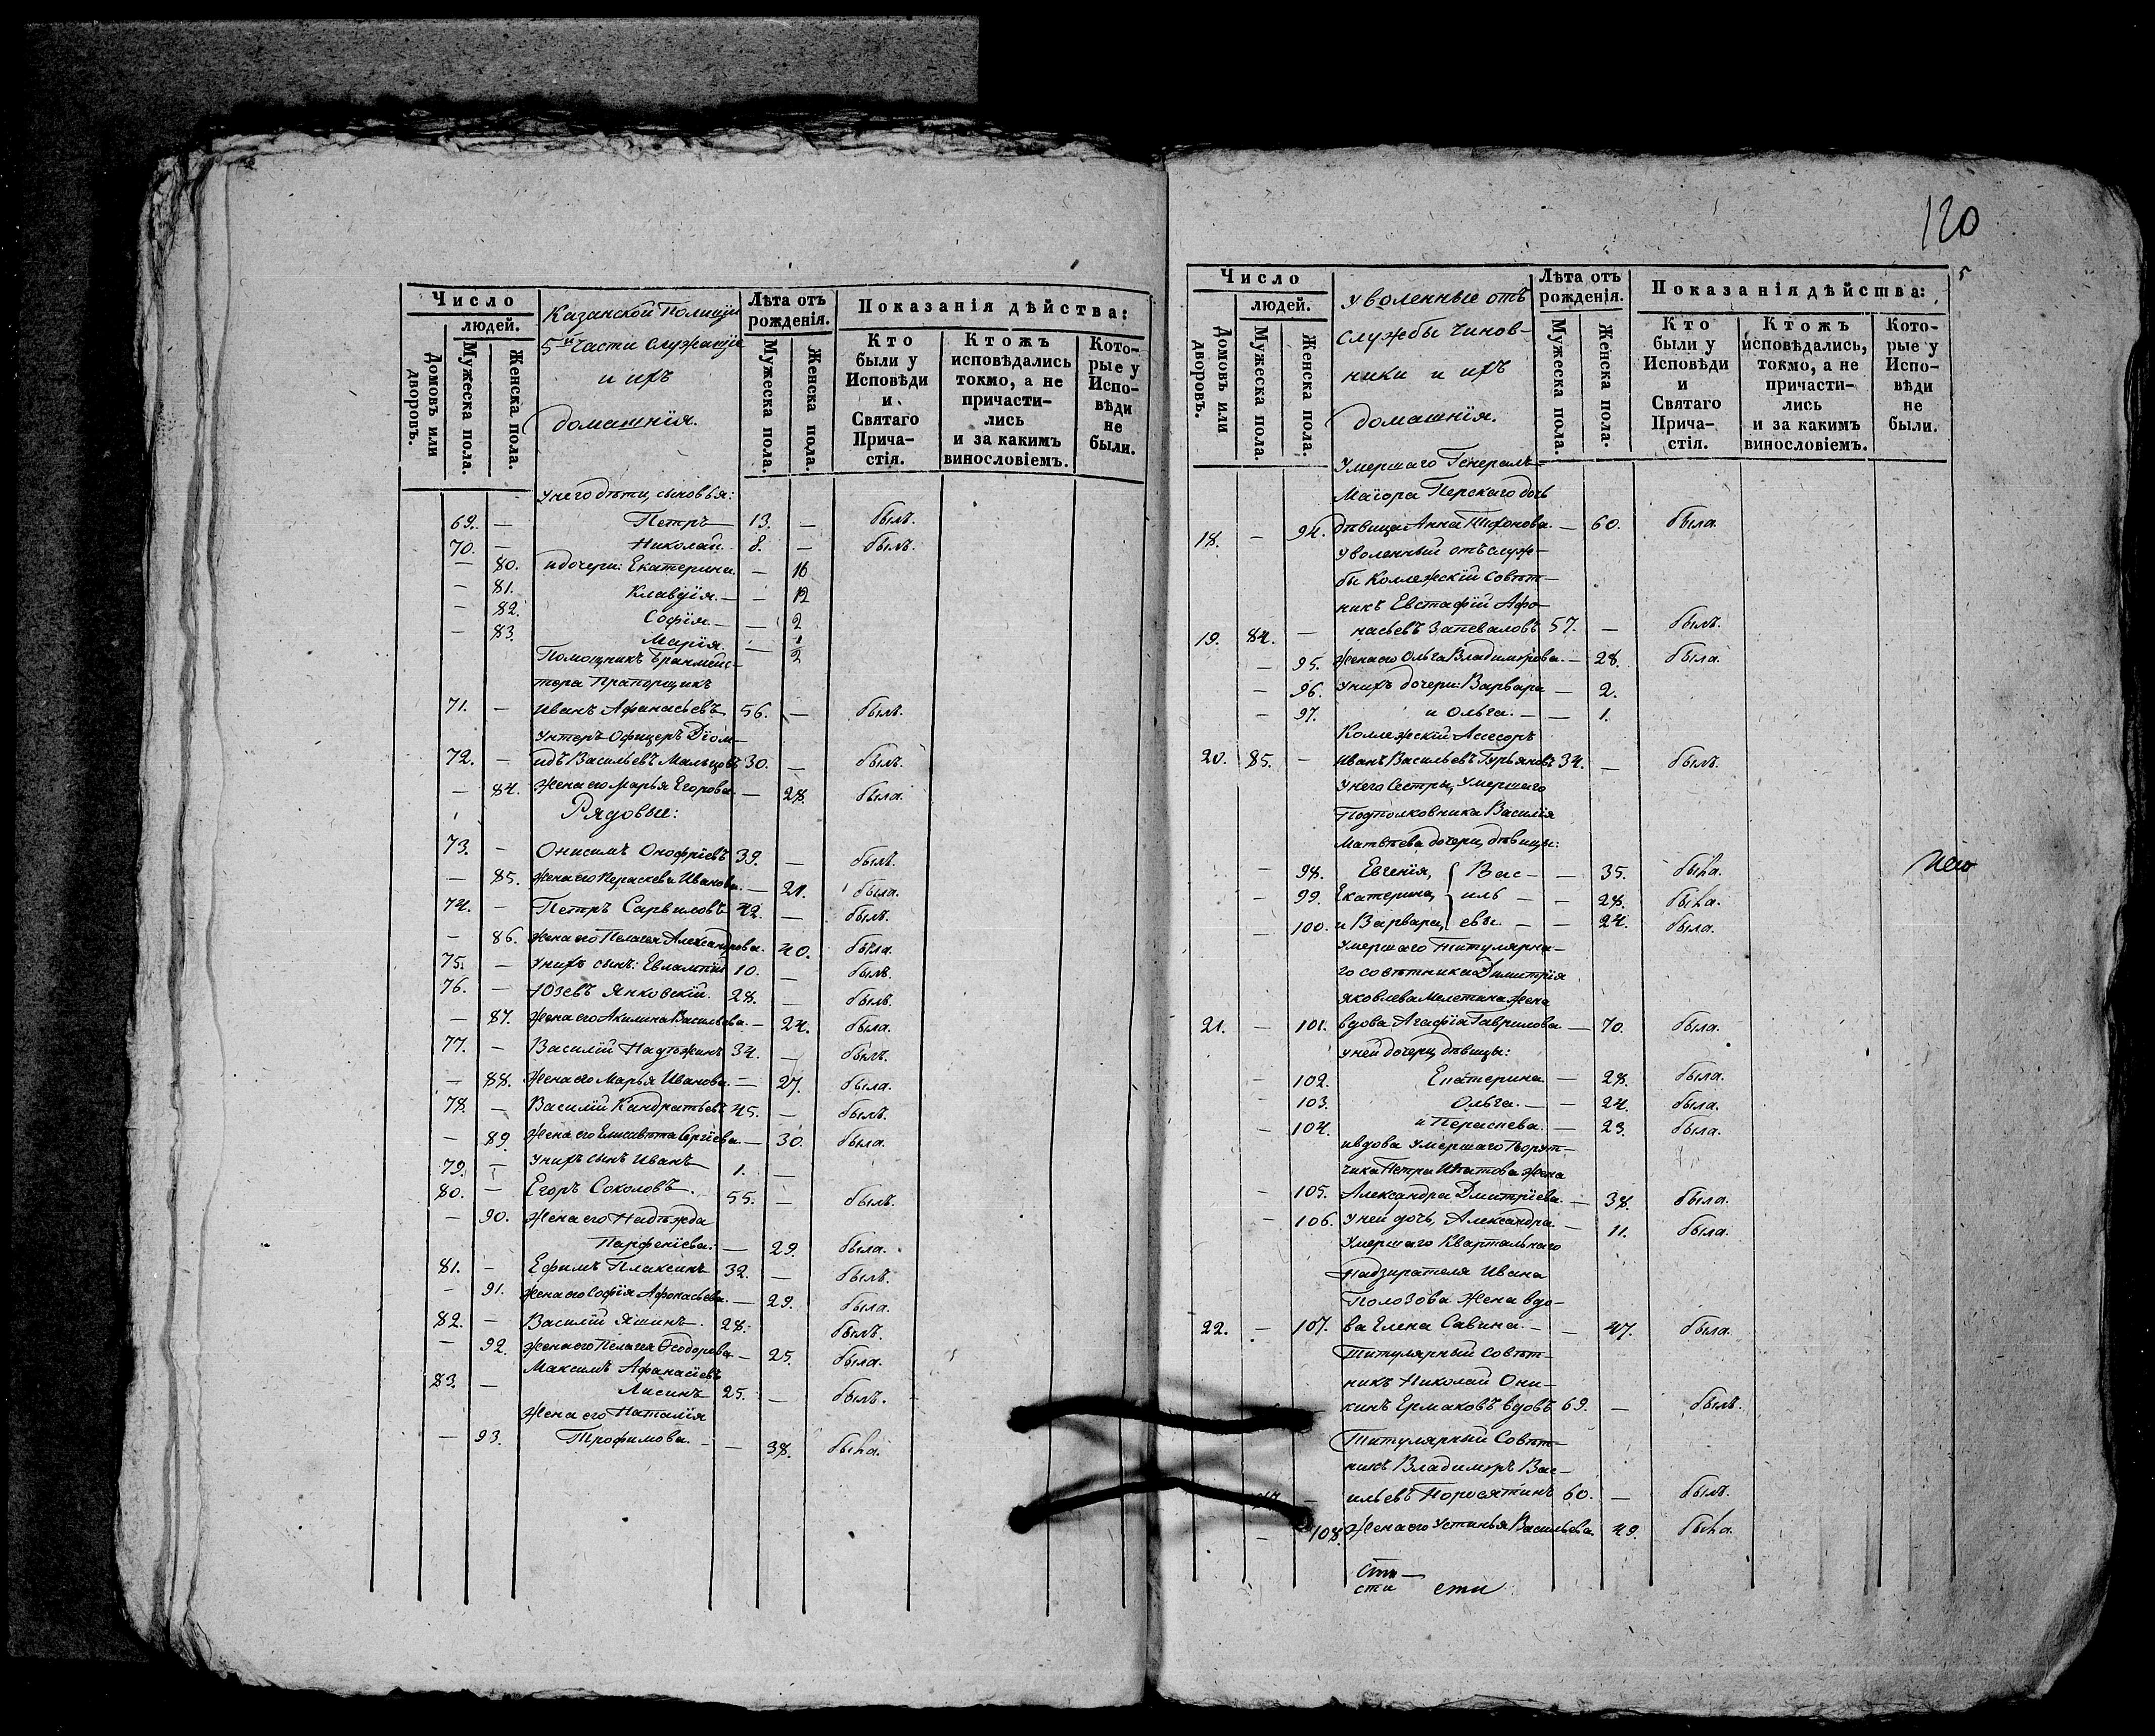 Число
людей.
Домовъ или дворовъ.
Мужеска пола.
Женска пола.
Казанской Полиціи
5й части служащіе
и ихъ
домашнія.
Лѣта отъ рожденія.
Мужеска пола.
Женска пола.
Показанія дѣйства:
Кто были у Исповѣди и Святаго Прича-стія.
Ктожъ исповѣдались токмо, а не причасти-лись и за какимъ винословіемъ.
Кото-рые у Испо-вѣди не были.
У него дѣти, сыновья:
69. — Петръ — 13. — былъ.
70. — Николай. 8. — былъ.
— 80. и дочери: Екатерина. — 16
— 81. Клавдія. — — 12
— 82. Софія. — — 2
— 83. Марія. — 1/2
Помощникъ Бранмейс-
тера Прапорщикъ
71. — Иванъ Афанасьевъ 56. — былъ.
Унтеръ-Офицеръ Діом-
72. — идъ Васильевъ Мальцовъ 30. — былъ.
— 84. Жена его Марья Егорова. — 28. была.
Рядовые:
73. — Онисимъ Онофріевъ 39. — былъ.
— 85. Жена его Пераскева Иванова. — 21. была.
74. — Петръ Сарвиловъ 42. — былъ.
— 86. Жена его Пелагея Александрова. 40. была.
75. — У нихъ сынъ: Евлампій 10. — былъ.
76. — Юзевъ Янковскій. 28. — былъ.
— 87. Жена его Акилина Васильева. — 24. была.
77. — Василій Надѣжинъ 34. — былъ.
— 88. Жена его Марья Иванова. — 27. была.
78. — Василій Кандратьевъ 45. — былъ.
— 89. Жена его Елисавѣта Сергіева — 30. была.
79. — У нихъ сынъ Иванъ 1. —
80. — Егоръ Соколовъ. 55. — былъ.
— 90. Жена его Надѣжда
Парфеніева. — 29. была.
81. — Ефимъ Плаксинъ 32. — былъ.
— 91. Жена его Софія Афонасьева. — 29. была.
82. — Василій Яшинъ. 28. былъ.
— 92. Жена его Пелагея Ѳеодорова — 25. была.
Максимъ Афанасіевъ
83. — Лисинъ 25. — былъ.
Жена его Наталія
— 93. Трофимова. — — 38. была.
120
5
Число
людей.
Домовъ или дворовъ.
Мужеска пола.
Женска пола.
Уволенные отъ
службы Чинов-
ники и ихъ
домашнія.
Лѣта отъ рожденія.
Мужеска пола.
Женска пола.
Показанія дѣйства:
Кто были у Исповѣди и Святаго Прича-стія.
Ктожъ исповѣдались, токмо, а не причасти-лись и за какимъ винословіемъ.
Кото-рые у Испо-вѣди не были.
Умершаго Генералъ-
Маіора Перскаго дочь
18. — 94. дѣвица Анна Тихонова. — 60. была.
Уволенный отъ служ-
бы Коллежскій Совѣт-
никъ Евстафій Афо-
19. 84. — насьевъ Запеваловъ 57. — былъ.
— 95. Жена его Ольга Владимірова. — 28. была.
— 96. У нихъ дочери: Варвара — 2.
— 97. и Ольга. — — 1.
Коллежскій Асесоръ
20. 85. — Иванъ Васильевъ Гурьяновъ 34. — былъ.
У него Сестры, умершаго
Подполковника Василія
Матвѣева дочери, дѣвицы:
— 98. Евгенія, Вас- — 35. была.
— 99. Екатерина, иль — — 28. была.
— 100. и Варвара, евы. — — 24. была.
Умершаго Титулярна-
го совѣтника Димитрія
Яковлева жена
21. — 101. вдова Агафія Гаврилова — 70. была.
У ней дочери, дѣвицы:
— 102. Екатерина — 28. была.
— 103. Ольга. — 24. была.
— 104. и Пераскева. — 23. была.
и вдова умершаго Порут-
чика Петра Ипатова жена
— 105. Александра Дмитріева. — 38. была.
— 106. У ней дочь, Александра. — 11. была.
Умершаго Квартальнаго
Надзирателя Ивана
Полозова жена вдо-
22. — 107. ва Елена Савина. — — 47. была.
Титулярный Совѣт-
никъ Николай Они-
кинъ Ермаковъ вдовъ 69. — былъ.
Титулярный Совѣт-
никъ Владиміръ Вас-
ильевъ Поросятинъ 60. — былъ.
— 108. Жена его Устинья Васильева 49. была.
сти
сти сти